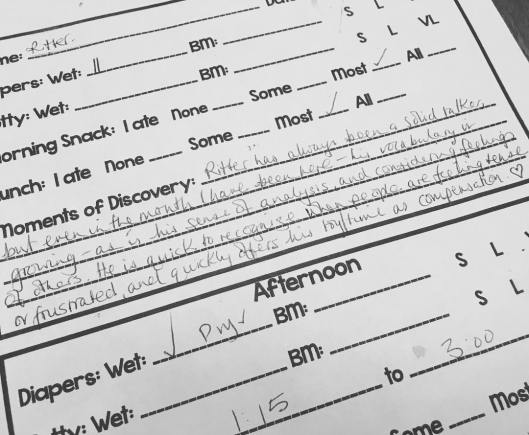 me: Ritter
S L
pers: Wet: || BM: S L VL
tty: Wet: BM:
orning Snack: I ate None Some Most ✓ All
unch: I ate None Some Most ✓ All
Moments of Discovery: Ritter has always been a solid talker,
but even in the month I have been here - his vocabulary is
growing - as is his sense of analysis and considering feelings
of others. He is quick to recognize when people are feeling tense
or frustrated, and quickly offers his toy/time as compensation. ♡
Afternoon
Diapers: Wet: Dry ✓ BM: S L
tty: Wet: BM: S L
1:15 to 3:00
ome Most